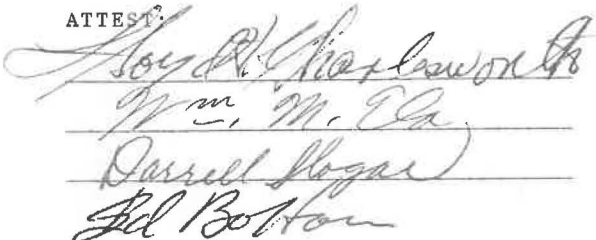 ATTEST:
Floyd H. Charlesworth
Wm. M. Ela
Darrell Hogan
Ed Bolton